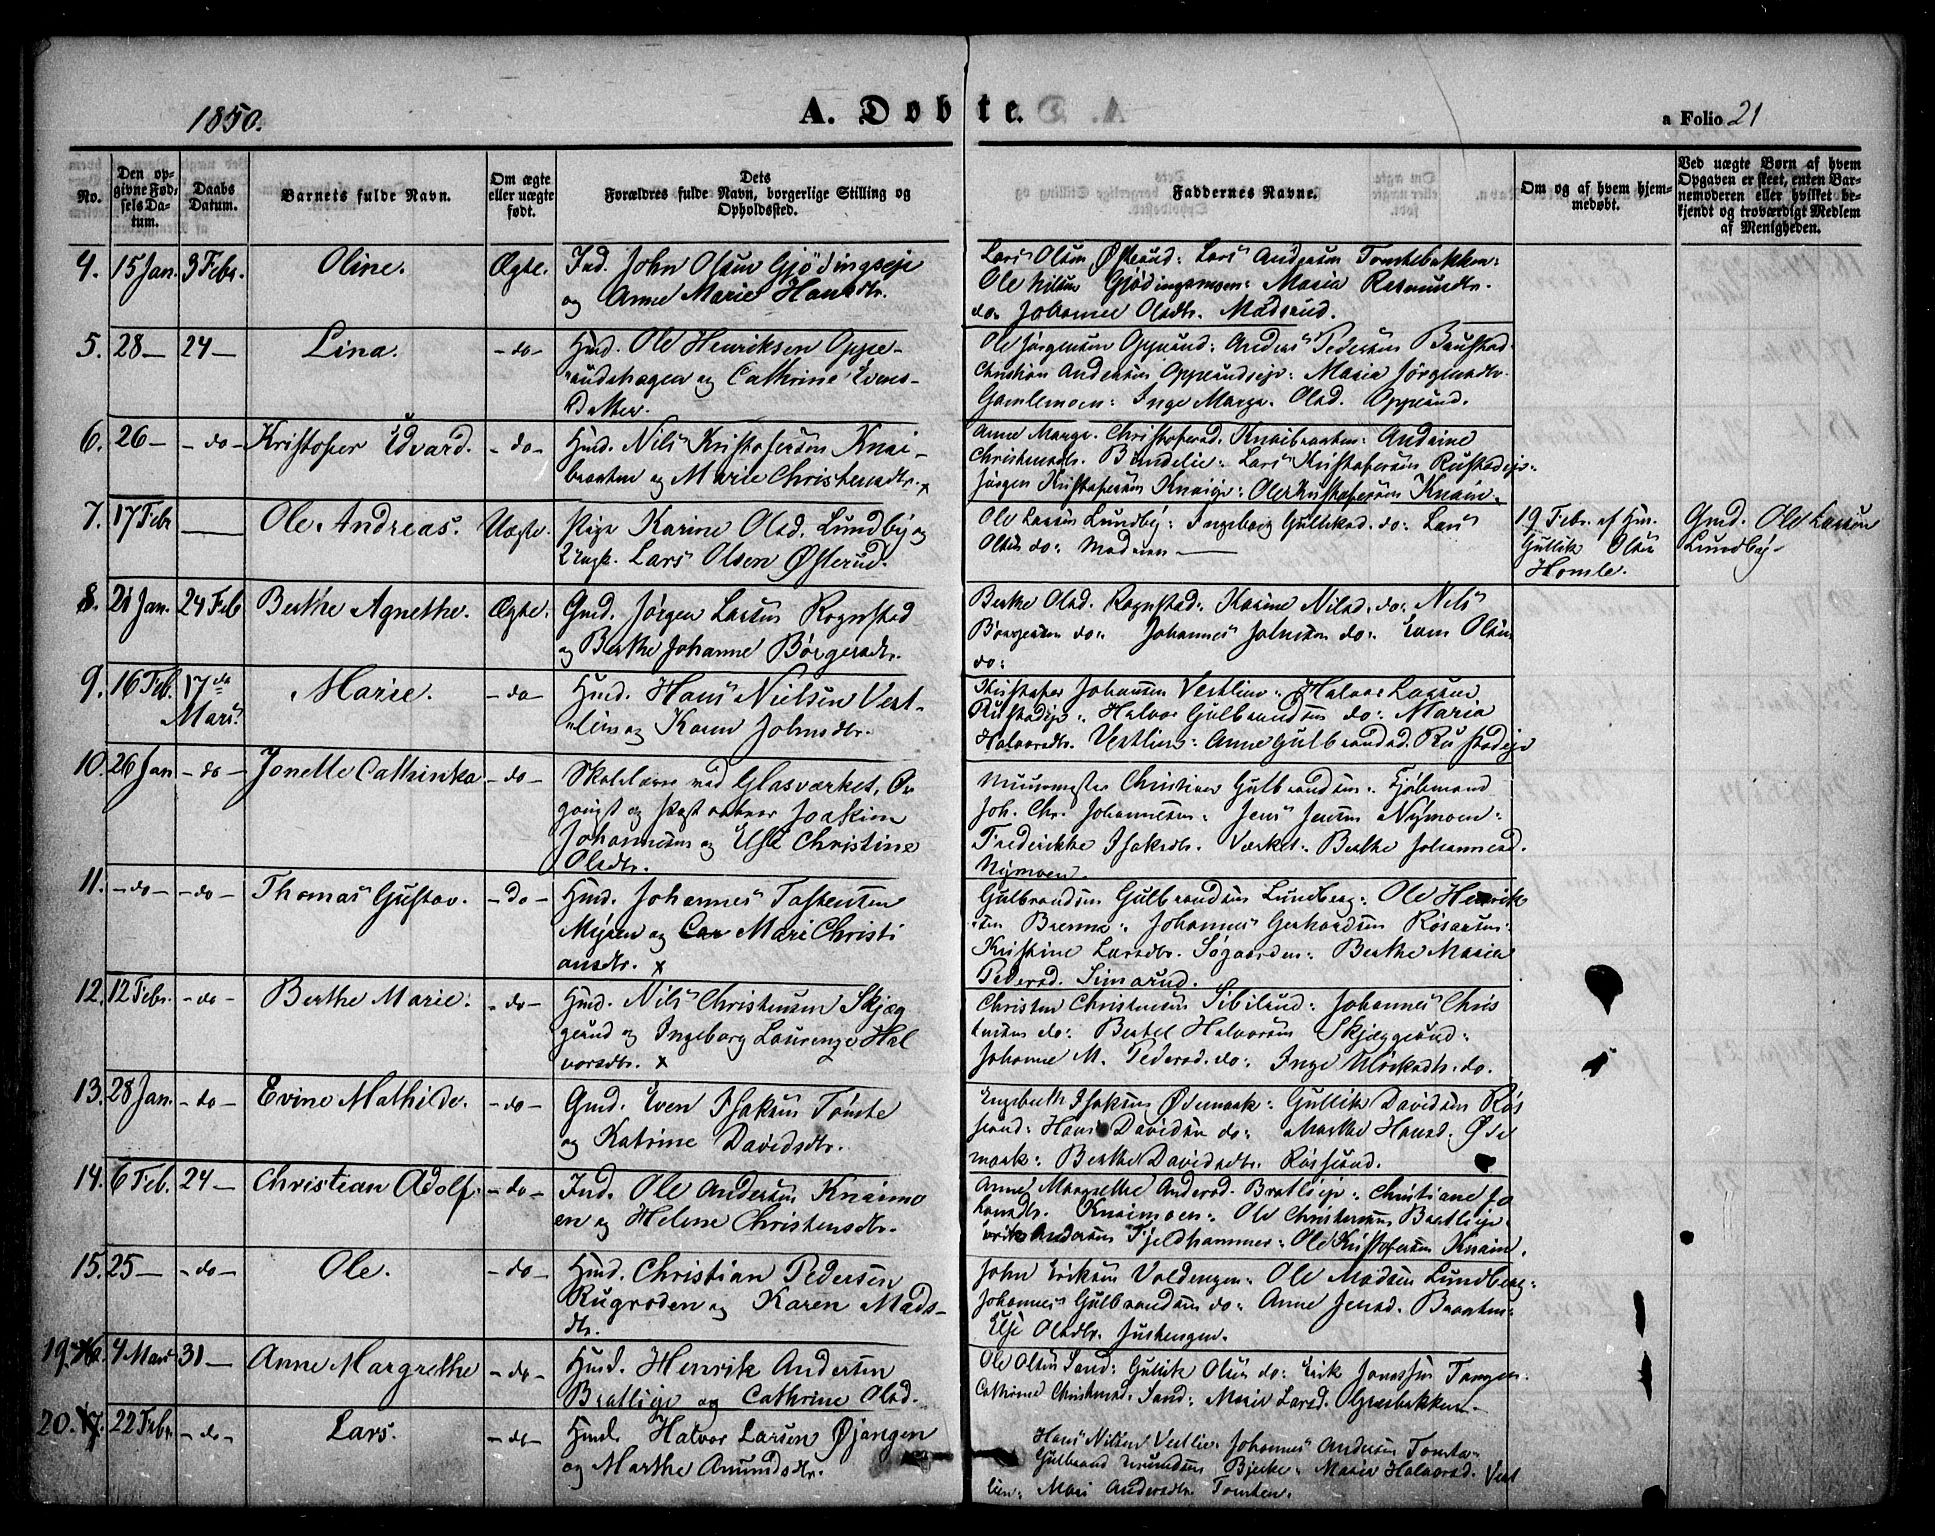 1850.
A. Døbte.
a Folio 21
No.
Den opgivne Fødselsdatum.
Daabs Datum.
Barnets fulde Navn.
Om ægte eller uægte født.
Dets Forældres fulde Navn, borgerlige Stilling og Opholdssted.
Faddernes Navne.
Om og af hvem hjemmedøbt.
Ved uægte Børn af hvem Opgaven er skeet, enten Barnemoderen eller hvilket bekjendt og troværdigt Medlem af Menigheden.
4. 15 Jan. 3 Febr. Oline. Ægte. Ind. John Olsen Gjödingseje
og Anne Marie Hansdtr.
Lars Olsen Østerud: Lars Andersen Tomtebakken:
Ole Nilsen Gjödingsmoen: Maria Rasmusdtr.
do. Johanne Olsdtr. Madsrud.
5. 28 — 24 — Lina. - do - Hmd. Ole Henriksen Oppe-
rudshagen og Cathrine Evens-
Datter.
Ole Jørgensen Opperud: Anders Pedersen Baustad.
Christian Andersen Opperudseje: Maria Jørgensdtr.
Gamlemoen: Inge Margr. Olsd. Opperud.
6. 26 — - do - Kristofer Edvard. - do - Hmd. Nils Kristofersen Knai-
braaten og Marie Christensdtr. x
Anne Margr. Christofersd. Knaibraaten: Andrine
Christensdtr. Lars Kristofersen Rustadeje:
Jørgen Kristofersen Knaieje: Ole Kristofersen Knain.
7. 17 Febr — Ole Andreas. Uægte. Pige Karine Olsd. Lundby og
Ungk. Lars Olsen Østerud.
Ole Larsen Lundby: Ingeborg Gulliksd. do: Lars
Olsen do: Moderen —
19 Febr. af Hus.
Gullik Olsen
Homle.
Gmd. Ole Larsen
Lundby —
8. 21 Jan. 24 Feb Berthe Agnethe. Ægte. Gmd. Jörgen Larsen Rognstad
og Berthe Johanne Börgersdtr.
Berthe Olsd. Rognstad: Karine Nilsd. do: Nils
Börgersen do: Johannes Johnsen do: Olsen
do:
9. 16 Feb. 17de
Mars. Marie. - do - Hmd. Hans Nielsen Vest-
lien og Karen Johnsdtr.
Kristofer Johansen Vestlien: Halvor Larsen
Rustadeje: Halvor Gulbrandsen do: Maria
Halvorsdtr. Vestlien: Anne Gulbrandsd. Rustadeje
10. 26 Jan - do - Jonette Cathinka - do - Skolelærer ved Glasværket, Or
ganist og Joakim
Johannesen og Else Christine
Olsdtr.
Muurmester Christian Gulbrandsen:
Joh. Chr. Johannesen: Jens Jensen Nymoen:
Frederikke Isaksdtr. Værket: Berthe Johannesd.
Nymoen.
11. - do - - do - Thomas Gustav. - do - Hmd. Johannes Torstensen
Myren og Mari Christi
ansdtr. x
Gulbrandsen Lundberg: Ole Henrik
sen Brenna: Johannes Gerhardsen
Kristine Larsdtr. Søgaarden: Berthe Maria
Pedersd. Simarud.
12. 12 Febr. - do - Berthe Marie. - do - Hmd. Nils Christensen Skjæg
gerud og Ingeborg Laurenze Hal
vorsdtr. x
Christen Christensen Sibilrud: Johannes Chris
tensen do: Bertel Halvorsen Skjæggerud:
Johanne M. Pedersd. do: Inge do.
13. 28 Jan. - do - Evine Mathilde. - do - Gmd. Even Isaksen Tomte
og Katrine Davidsdtr.
Engebreth Isaksen Ødemark: Gullik Davidsen Rös
serud: Hans Davidsen do: Marthe Hansd. Øde
mark: Berthe Davidsdtr. Rösserud.
14. 6 Feb. 24 — Christian Adolf. - do - Ind. Ole Andersen Knaimo
en og Helene Christensdtr.
Anne Margrethe Andersd. Bratlieje: Christiane Jo
hansdtr. Knaimoen: Ole Christensen Bratlieje.
Erik Andersen Fjeldhammer: Ole Kristofersen Knain.
15. 25 — - do - Ole. - do - Hmd. Christian Pedersen
Rugroden og Karen Mads-
dtr.
John Eriksen Voldengen: Ole Madsen Lundberg:
Johannes Gulbrandsen do: Anne Jensd. Braaten:
Else Olsdtr. Justengen.
19. 4 Mars 31 — Anne Margrethe - do - Hmd. Henrik Andersen
Bratlieje og Cathrine Olsd.
Ole Olsen Sand: Gullik Olsen do: Erik Jonassen Tangen:
Cathrine Christensd. Sand: Marie Larsd. Græsbakken.
20. 22 Febr. - do - Lars. - do - Hmd. Halvor Larsen Øjangen
og Marthe Amundsdtr.
Hans Nilsen Vestlie: Johannes Andersen Tomte:
Gulbrand Amundsen Bjerke: Marie Halvorsd. Vest
lien: Mari Andersdtr. Tomten.